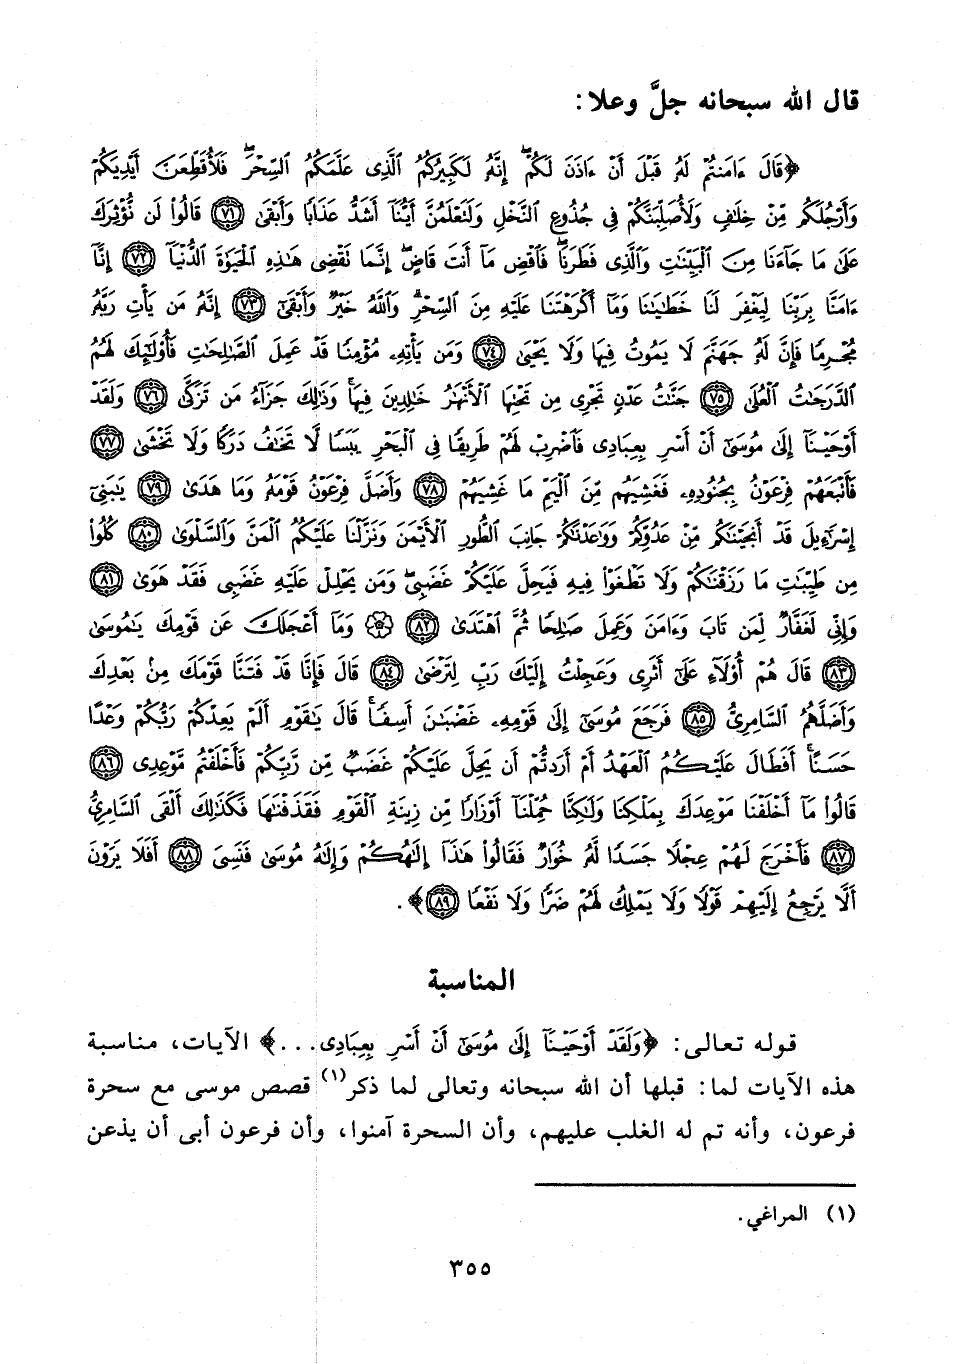 قال الله سبحانه جلَّ وعلا:
﴿قَالَ ءَامَنتُمْ لَهُۥ قَبْلَ أَنْ ءَاذَنَ لَكُمْ ۖ إِنَّهُۥ لَكَبِيرُكُمُ ٱلَّذِى عَلَّمَكُمُ ٱلسِّحْرَ ۖ فَلَأُقَطِّعَنَّ أَيْدِيَكُمْ
وَأَرْجُلَكُم مِّنْ خِلَـٰفٍ وَلَأُصَلِّبَنَّكُمْ فِى جُذُوعِ ٱلنَّخْلِ وَلَتَعْلَمُنَّ أَيُّنَآ أَشَدُّ عَذَابًا وَأَبْقَىٰ ﴿٧١﴾ قَالُوا۟ لَن نُّؤْثِرَكَ
عَلَىٰ مَا جَآءَنَا مِنَ ٱلْبَيِّنَـٰتِ وَٱلَّذِى فَطَرَنَا ۖ فَٱقْضِ مَآ أَنتَ قَاضٍ ۖ إِنَّمَا نَقْضِى هَـٰذِهِ ٱلْحَيَوٰةَ ٱلدُّنْيَآ ﴿٧٢﴾ إِنَّآ
ءَامَنَّا بِرَبِّنَا لِيَغْفِرَ لَنَا خَطَـٰيَـٰنَا وَمَآ أَكْرَهْتَنَا عَلَيْهِ مِنَ ٱلسِّحْرِ ۗ وَٱللَّهُ خَيْرٌ وَأَبْقَىٰٓ ﴿٧٣﴾ إِنَّهُۥ مَن يَأْتِ رَبَّهُۥ
مُجْرِمًا فَإِنَّ لَهُۥ جَهَنَّمَ لَا يَمُوتُ فِيهَا وَلَا يَحْيَىٰ ﴿٧٤﴾ وَمَن يَأْتِهِۦ مُؤْمِنًا قَدْ عَمِلَ ٱلصَّـٰلِحَـٰتِ فَأُو۟لَـٰٓئِكَ لَهُمُ
ٱلدَّرَجَـٰتُ ٱلْعُلَىٰ ﴿٧٥﴾ جَنَّـٰتُ عَدْنٍ تَجْرِى مِن تَحْتِهَا ٱلْأَنْهَـٰرُ خَـٰلِدِينَ فِيهَا ۚ وَذَٰلِكَ جَزَآءُ مَن تَزَكَّىٰ ﴿٧٦﴾ وَلَقَدْ
أَوْحَيْنَآ إِلَىٰ مُوسَىٰٓ أَنْ أَسْرِ بِعِبَادِى فَٱضْرِبْ لَهُمْ طَرِيقًا فِى ٱلْبَحْرِ يَبَسًا لَّا تَخَـٰفُ دَرَكًا وَلَا تَخْشَىٰ ﴿٧٧﴾
فَأَتْبَعَهُمْ فِرْعَوْنُ بِجُنُودِهِۦ فَغَشِيَهُم مِّنَ ٱلْيَمِّ مَا غَشِيَهُمْ ﴿٧٨﴾ وَأَضَلَّ فِرْعَوْنُ قَوْمَهُۥ وَمَا هَدَىٰ ﴿٧٩﴾ يَـٰبَنِىٓ
إِسْرَٰٓءِيلَ قَدْ أَنجَيْنَـٰكُم مِّنْ عَدُوِّكُمْ وَوَٰعَدْنَـٰكُمْ جَانِبَ ٱلطُّورِ ٱلْأَيْمَنَ وَنَزَّلْنَا عَلَيْكُمُ ٱلْمَنَّ وَٱلسَّلْوَىٰ ﴿٨٠﴾ كُلُوا۟
مِن طَيِّبَـٰتِ مَا رَزَقْنَـٰكُمْ وَلَا تَطْغَوْا۟ فِيهِ فَيَحِلَّ عَلَيْكُمْ غَضَبِى ۖ وَمَن يَحْلِلْ عَلَيْهِ غَضَبِى فَقَدْ هَوَىٰ ﴿٨١﴾
وَإِنِّى لَغَفَّارٌ لِّمَن تَابَ وَءَامَنَ وَعَمِلَ صَـٰلِحًا ثُمَّ ٱهْتَدَىٰ ﴿٨٢﴾ ۞ وَمَآ أَعْجَلَكَ عَن قَوْمِكَ يَـٰمُوسَىٰ
﴿٨٣﴾ قَالَ هُمْ أُو۟لَآءِ عَلَىٰٓ أَثَرِى وَعَجِلْتُ إِلَيْكَ رَبِّ لِتَرْضَىٰ ﴿٨٤﴾ قَالَ فَإِنَّا قَدْ فَتَنَّا قَوْمَكَ مِنۢ بَعْدِكَ
وَأَضَلَّهُمُ ٱلسَّامِرِىُّ ﴿٨٥﴾ فَرَجَعَ مُوسَىٰٓ إِلَىٰ قَوْمِهِۦ غَضْبَـٰنَ أَسِفًا ۚ قَالَ يَـٰقَوْمِ أَلَمْ يَعِدْكُمْ رَبُّكُمْ وَعْدًا
حَسَنًا ۚ أَفَطَالَ عَلَيْكُمُ ٱلْعَهْدُ أَمْ أَرَدتُّمْ أَن يَحِلَّ عَلَيْكُمْ غَضَبٌ مِّن رَّبِّكُمْ فَأَخْلَفْتُم مَّوْعِدِى ﴿٨٦﴾
قَالُوا۟ مَآ أَخْلَفْنَا مَوْعِدَكَ بِمَلْكِنَا وَلَـٰكِنَّا حُمِّلْنَآ أَوْزَارًا مِّن زِينَةِ ٱلْقَوْمِ فَقَذَفْنَـٰهَا فَكَذَٰلِكَ أَلْقَى ٱلسَّامِرِىُّ
﴿٨٧﴾ فَأَخْرَجَ لَهُمْ عِجْلًا جَسَدًا لَّهُۥ خُوَارٌ فَقَالُوا۟ هَـٰذَآ إِلَـٰهُكُمْ وَإِلَـٰهُ مُوسَىٰ فَنَسِىَ ﴿٨٨﴾ أَفَلَا يَرَوْنَ
أَلَّا يَرْجِعُ إِلَيْهِمْ قَوْلًا وَلَا يَمْلِكُ لَهُمْ ضَرًّا وَلَا نَفْعًا ﴿٨٩﴾﴾.
المناسبة
قوله تعالى: ﴿وَلَقَدْ أَوْحَيْنَآ إِلَىٰ مُوسَىٰٓ أَنْ أَسْرِ بِعِبَادِى...﴾ الآيات، مناسبة
هذه الآيات لما: قبلها أن الله سبحانه وتعالى لما ذكر(١) قصص موسى مع سحرة
فرعون، وأنه تم له الغلب عليهم، وأن السحرة آمنوا، وأن فرعون أبى أن يذعن
(١) المراغي.
٣٥٥